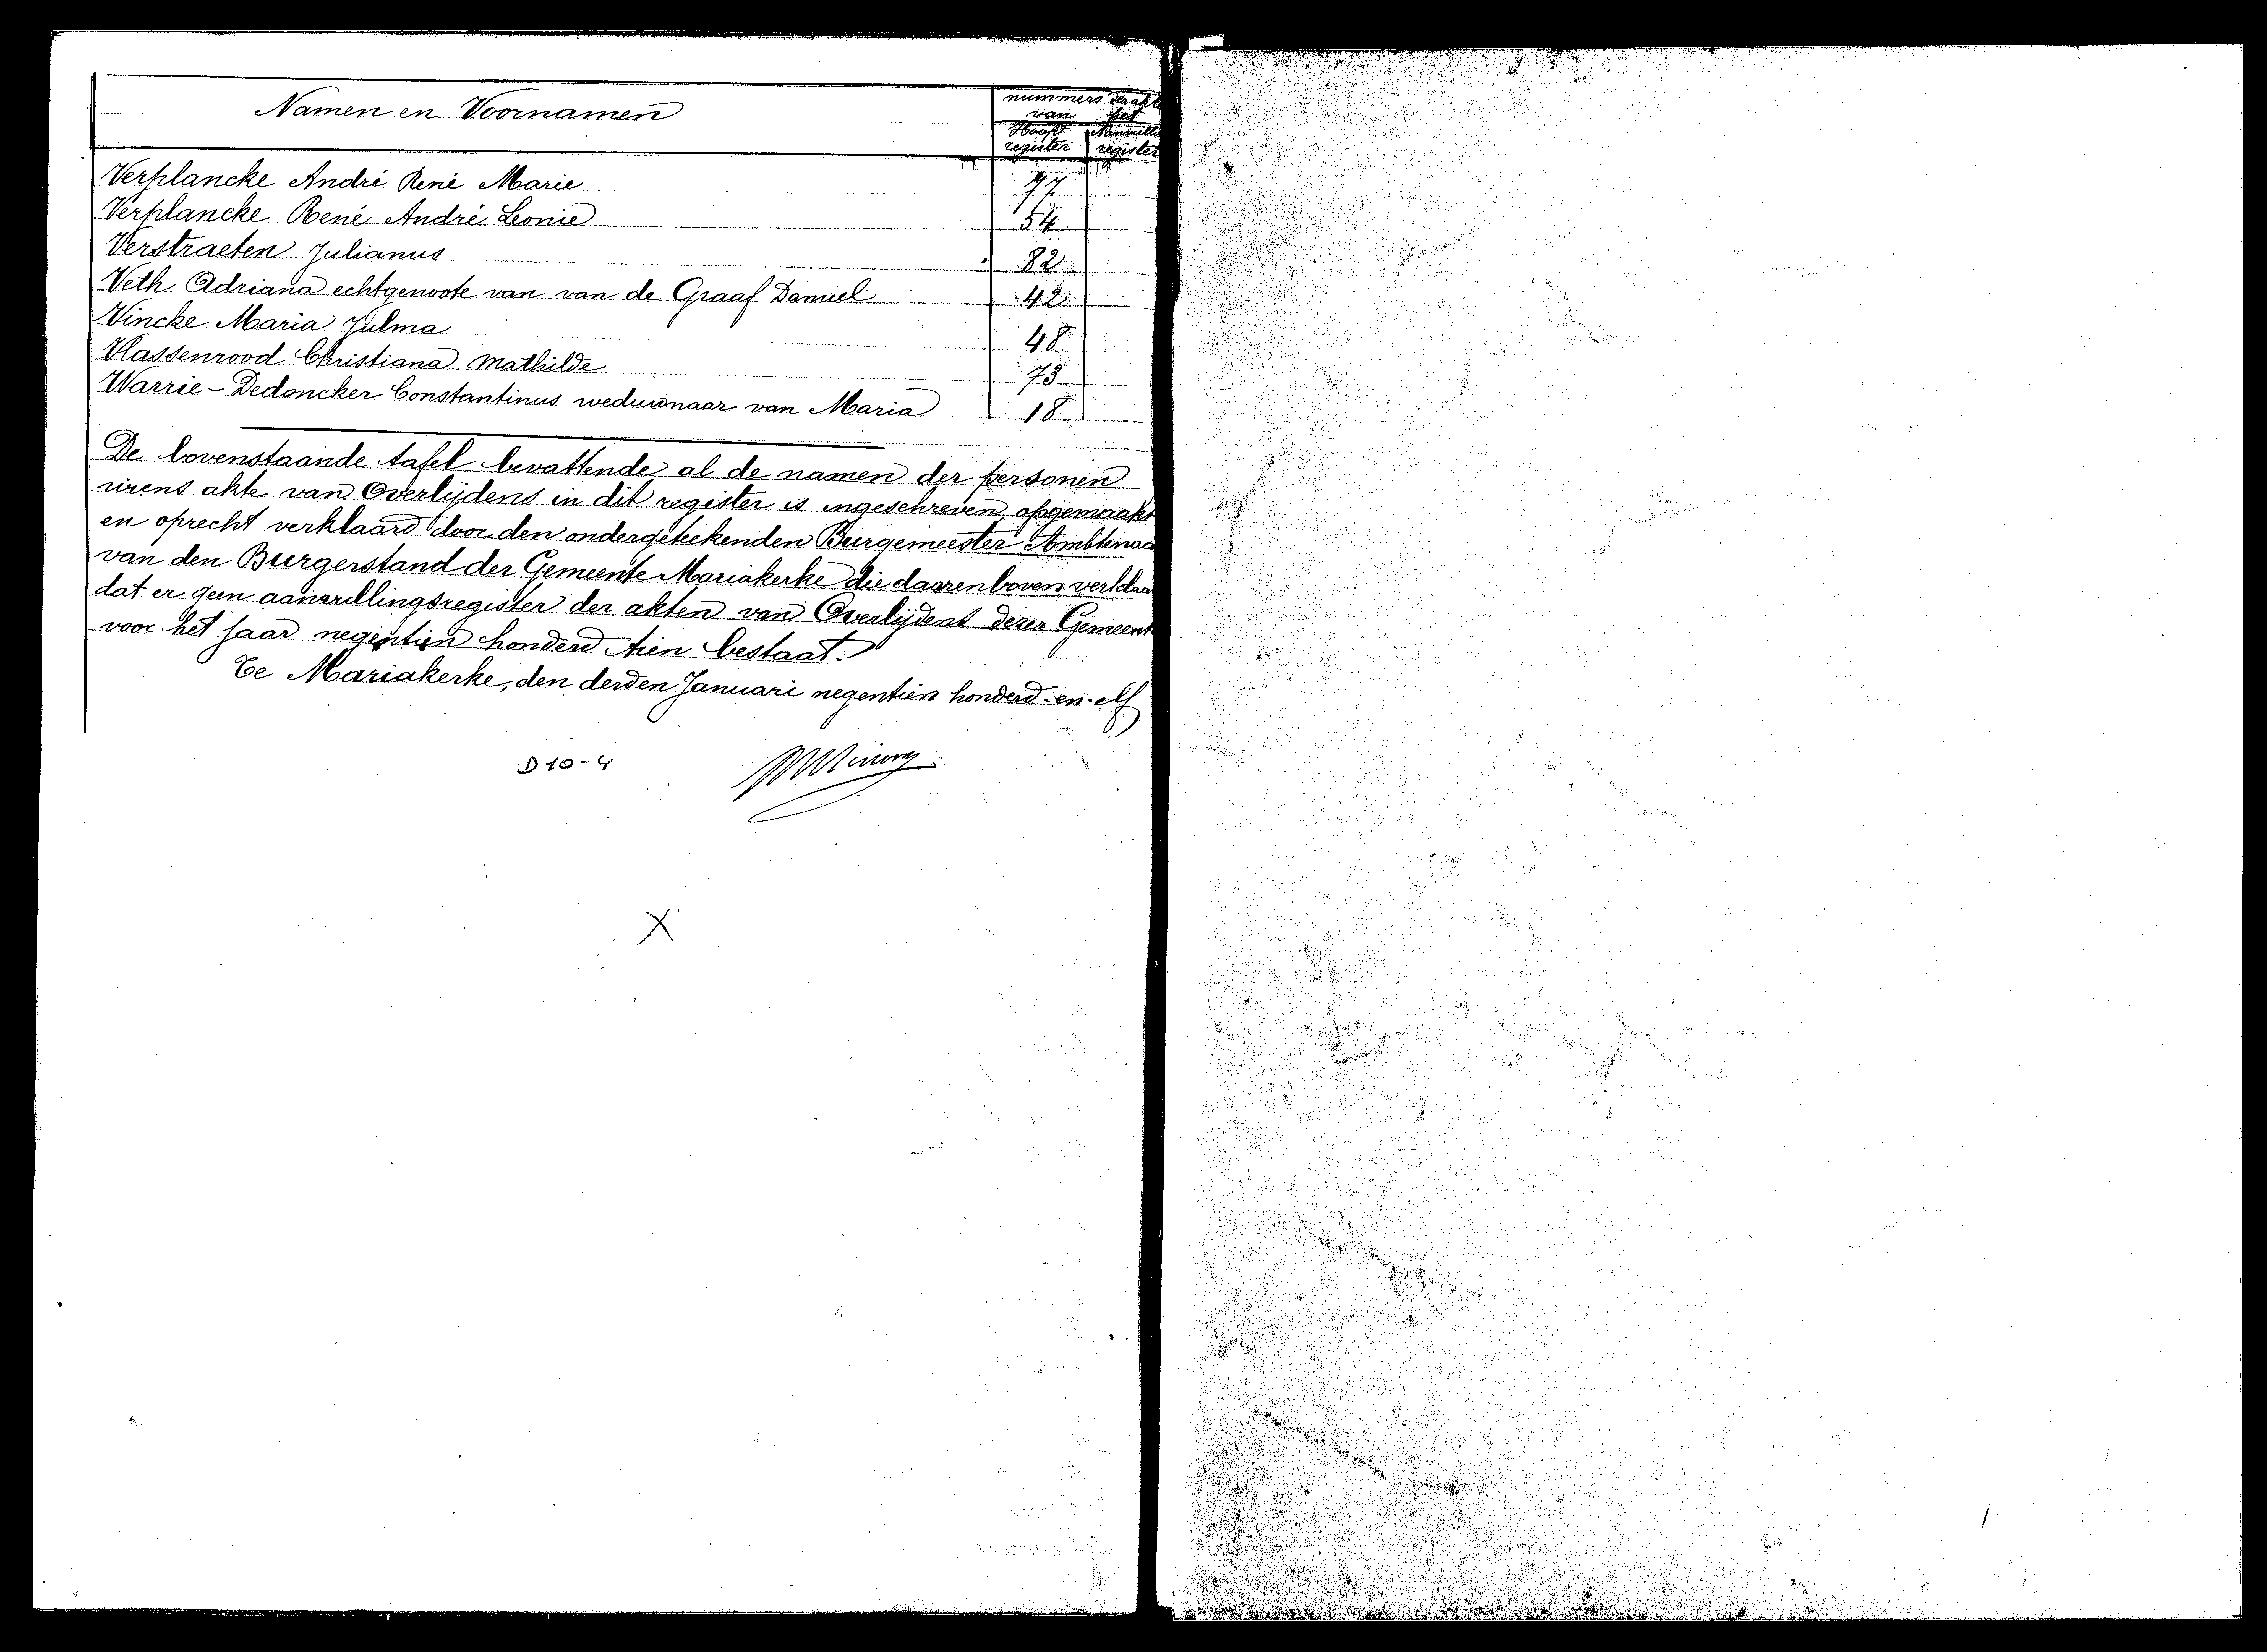 Namen en Voornamen
nummers der akte
van het
Hoofd register
Aanvull register
Verplancke André René Marie 77
Verplancke René André Leonie 54
Verstraeten Julianus 82
Veth Adriana echtgenoote van van de Graaf Daniel 42
Vincke Maria Julma 48
Vlassenrood Christiana Mathilde 73
Warrie-Dedoncker Constantinus weduwnaar van Maria 18
De bovenstaande tafel bevattende al de namen der personen
wiens akte van Overlijdens in dit register is ingeschreven, opgemaakt
en oprecht verklaard door den ondergeteekenden Burgemeester Ambtenaa
van den Burgerstand der Gemeente Mariakerke die daarenboven verklaa
dat er geen aanvullingsregister der akten van Overlijdens dezer Gemeent
voor het jaar negentien honderd tien bestaat.
Te Mariakerke, den derden Januari negentien honderd-en-elf
D 10-4
X